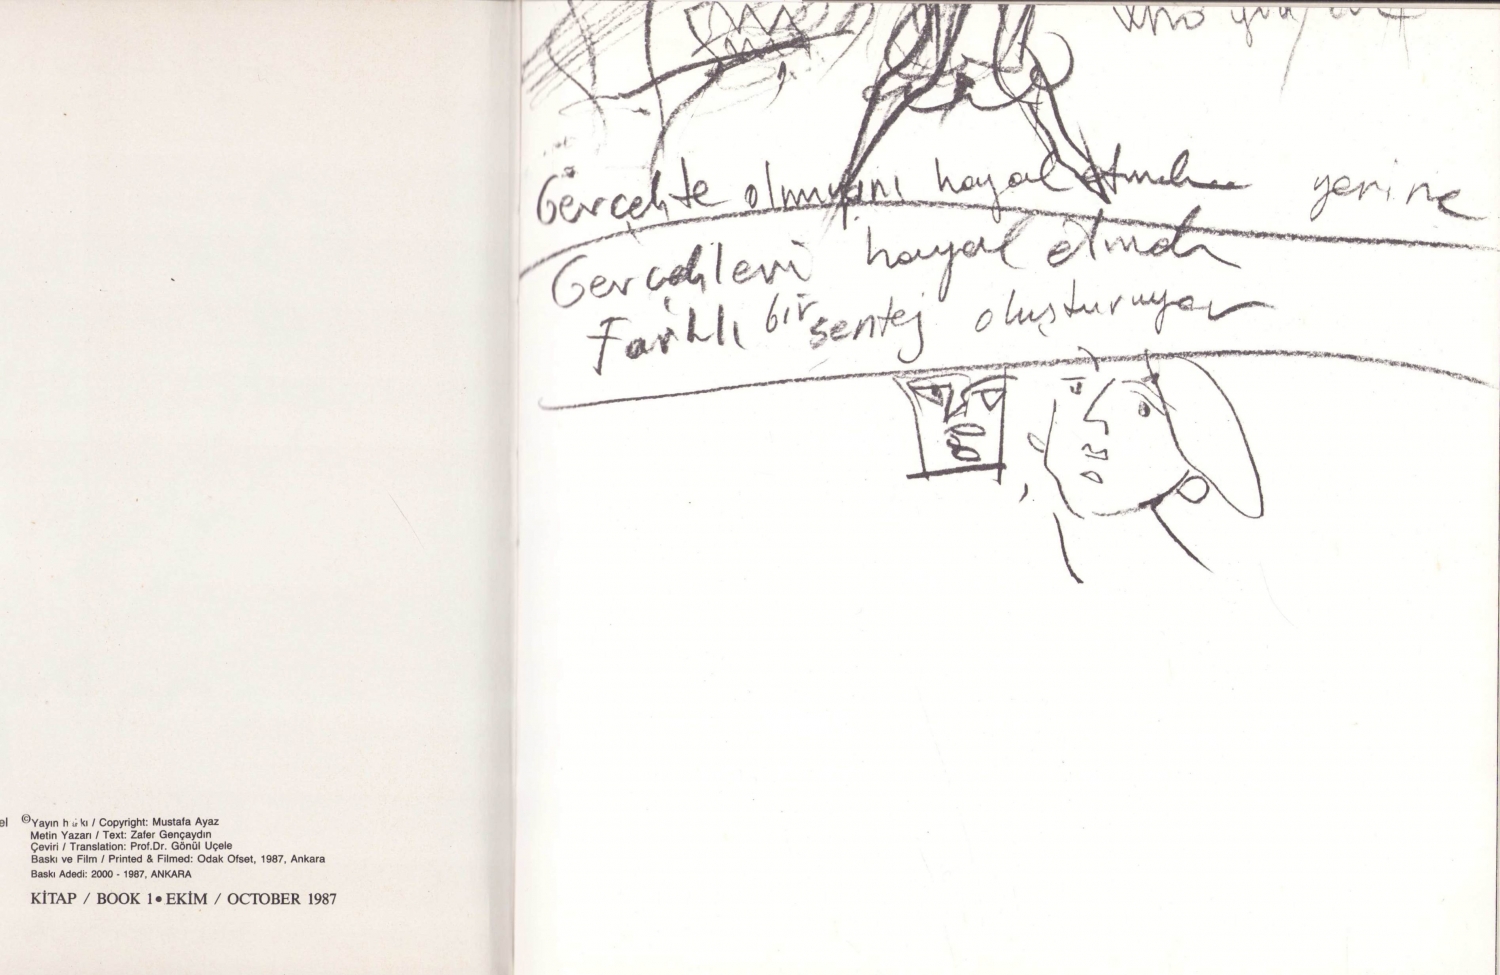 el
© Yayın hakkı / Copyright: Mustafa Ayaz
Metin Yazarı / Text: Zafer Gençaydın
Çeviri / Translation: Prof.Dr. Gönül Uçele
Baskı ve Film / Printed & Filmed: Odak Ofset, 1987, Ankara
Baskı Adedi: 2000 - 1987, ANKARA
KİTAP / BOOK 1 • EKİM / OCTOBER 1987
Gerçekte olmıyanı hayal etmek yerine
Gerçekleri hayal etmek
Farklı bir sentez oluşturuyor